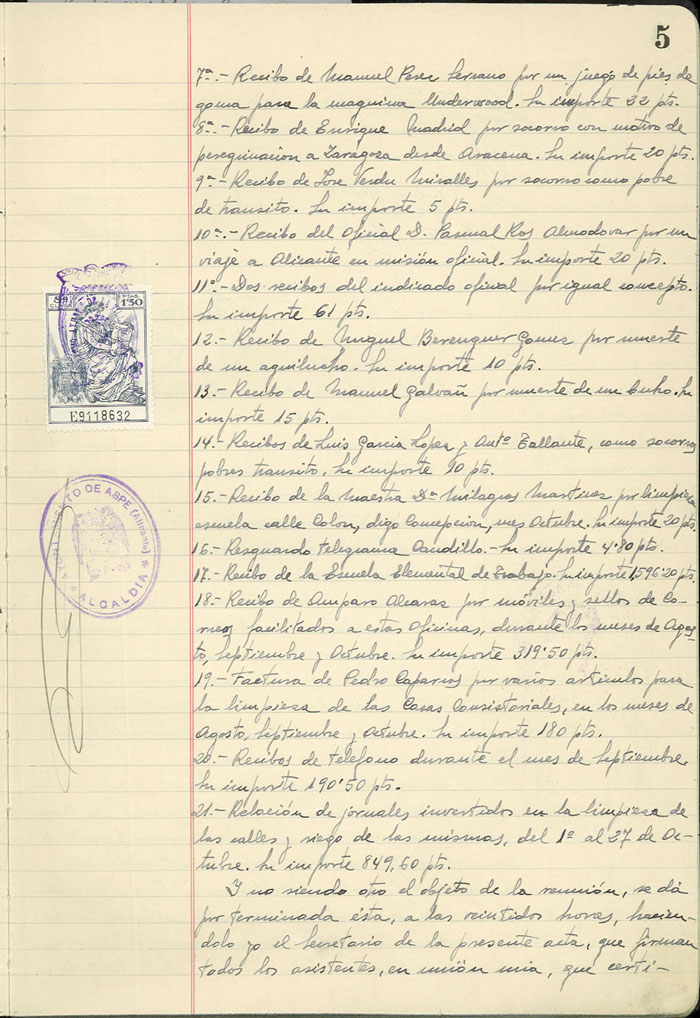 5
7ª.- Recibo de Manuel Perez Serrano por un juego de pies de
goma para la maquina Underwood. Su importe 22 pts.
8ª.- Recibo de Enrique Madrid por socorro con motivo de
peregrinacion a Zaragoza desde Aracena. Su importe 20 pts.
9ª.- Recibo de Jose Verdu Miralles por socorro como pobre
de transito. Su importe 5 pts.
10ª.- Recibo del Oficial D. Pascual Ros Almodovar por un
viaje a Alicante en misión oficial. Su importe 20 pts.
11ª.- Dos recibos del indicado oficial por igual concepto.
Su importe 61 pts.
12.- Recibo de Miguel Berenguer Gomez por muerte
de un aguilucho. Su importe 10 pts.
13.- Recibo de Manuel Galvañ por muerte de un buho. Su
importe 15 pts.
14.- Recibos de Luis Garcia Lopez y Antº Tallante, como socorros
pobres transito. Su importe 10 pts.
15.- Recibo de la Maestra Dª Milagros Martinez por limpieza
escuela calle Colon, digo Concepcion, mes Octubre. Su importe 20 pts.
16.- Resguardo telegrama Caudillo.- Su importe 4'80 pts.
17.- Recibo de la Escuela Elemental de Trabajo. Su importe 1,596'20 pts.
18.- Recibo de Amparo Alcaraz por móviles y sellos de Co-
rreos facilitados a estas Oficinas, durante los meses de Agos-
to, Septiembre y Octubre. Su importe 319'50 pts.
19.- Factura de Pedro Caparros por varios articulos para
la limpieza de las Casas Consistoriales, en los meses de
Agosto, Septiembre y Octubre. Su importe 180 pts.
20.- Recibos de teléfono durante el mes de Septiembre.
Su importe 190'50 pts.
21.- Relación de jornales invertidos en la limpieza de
las calles y riego de las mismas, del 1º al 27 de Oc-
tubre. Su importe 849,60 pts.
Y no siendo otro el objeto de la reunión, se dá
por terminada ésta, a las veintidos horas, hacien-
dolo yo el Secretario de la presente acta, que firman
todos los asistentes, en unión mia, que certi-
1'50
E9118632
AYUNTAMIENTO DE ASPE (Alicante)
* ALCALDIA *